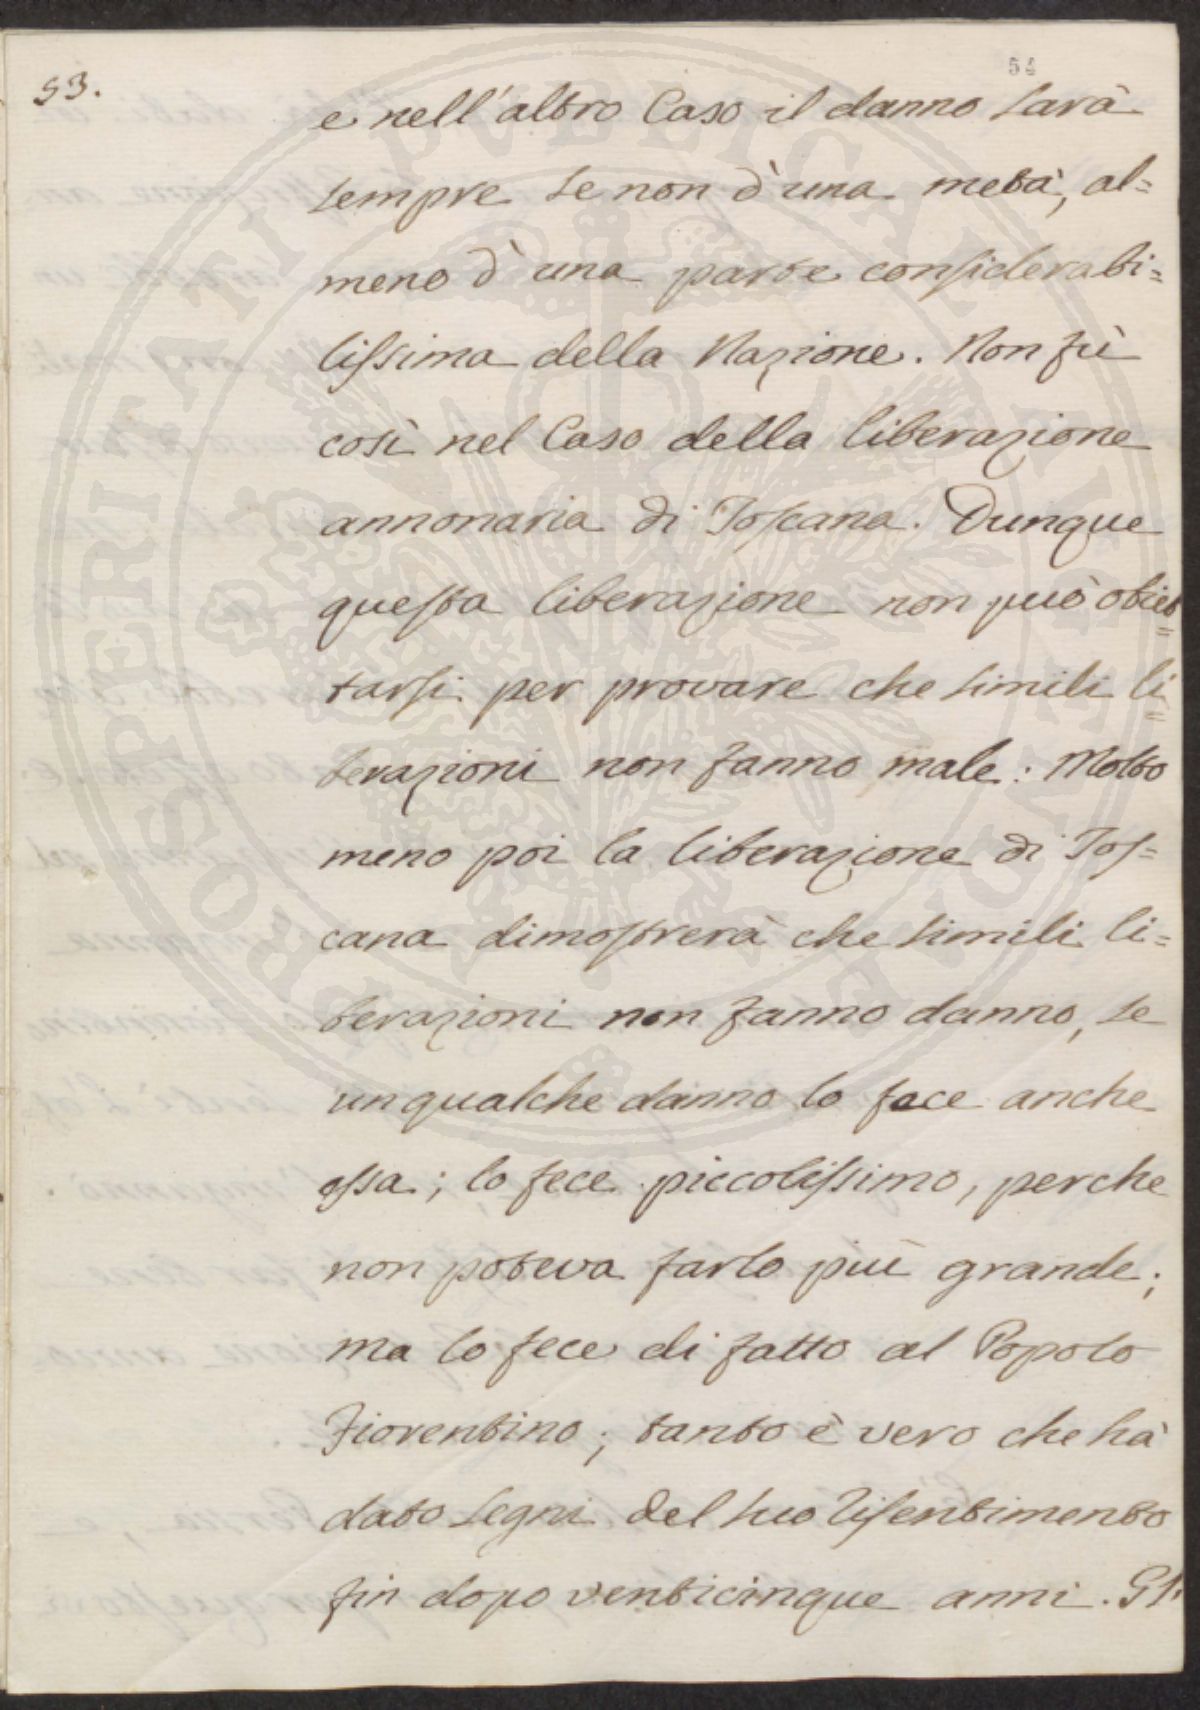 53.
54
e nell'altro Caso il danno sarà
sempre se non d'una metà, al=
meno d'una parte considerabi=
lissima della Nazione. Non fù
così nel Caso della liberazione
annonaria di Toscana. Dunque
questa liberazione non può obiet=
tarsi per provare che simili li=
berazioni non fanno male: Molto
meno poi la liberazione di Tos=
cana dimostrerà che simili li=
berazioni non fanno danno, se
un qualche danno lo fece anche
essa; lo fece piccolissimo, perche
non poteva farlo più grande;
ma lo fece di fatto al Popolo
Fiorentino; tanto è vero che hà
dato segni del suo risentimento
fin dopo venticinque anni. Gl'
PROSPERITATI PUBLICAE AUGENDAE